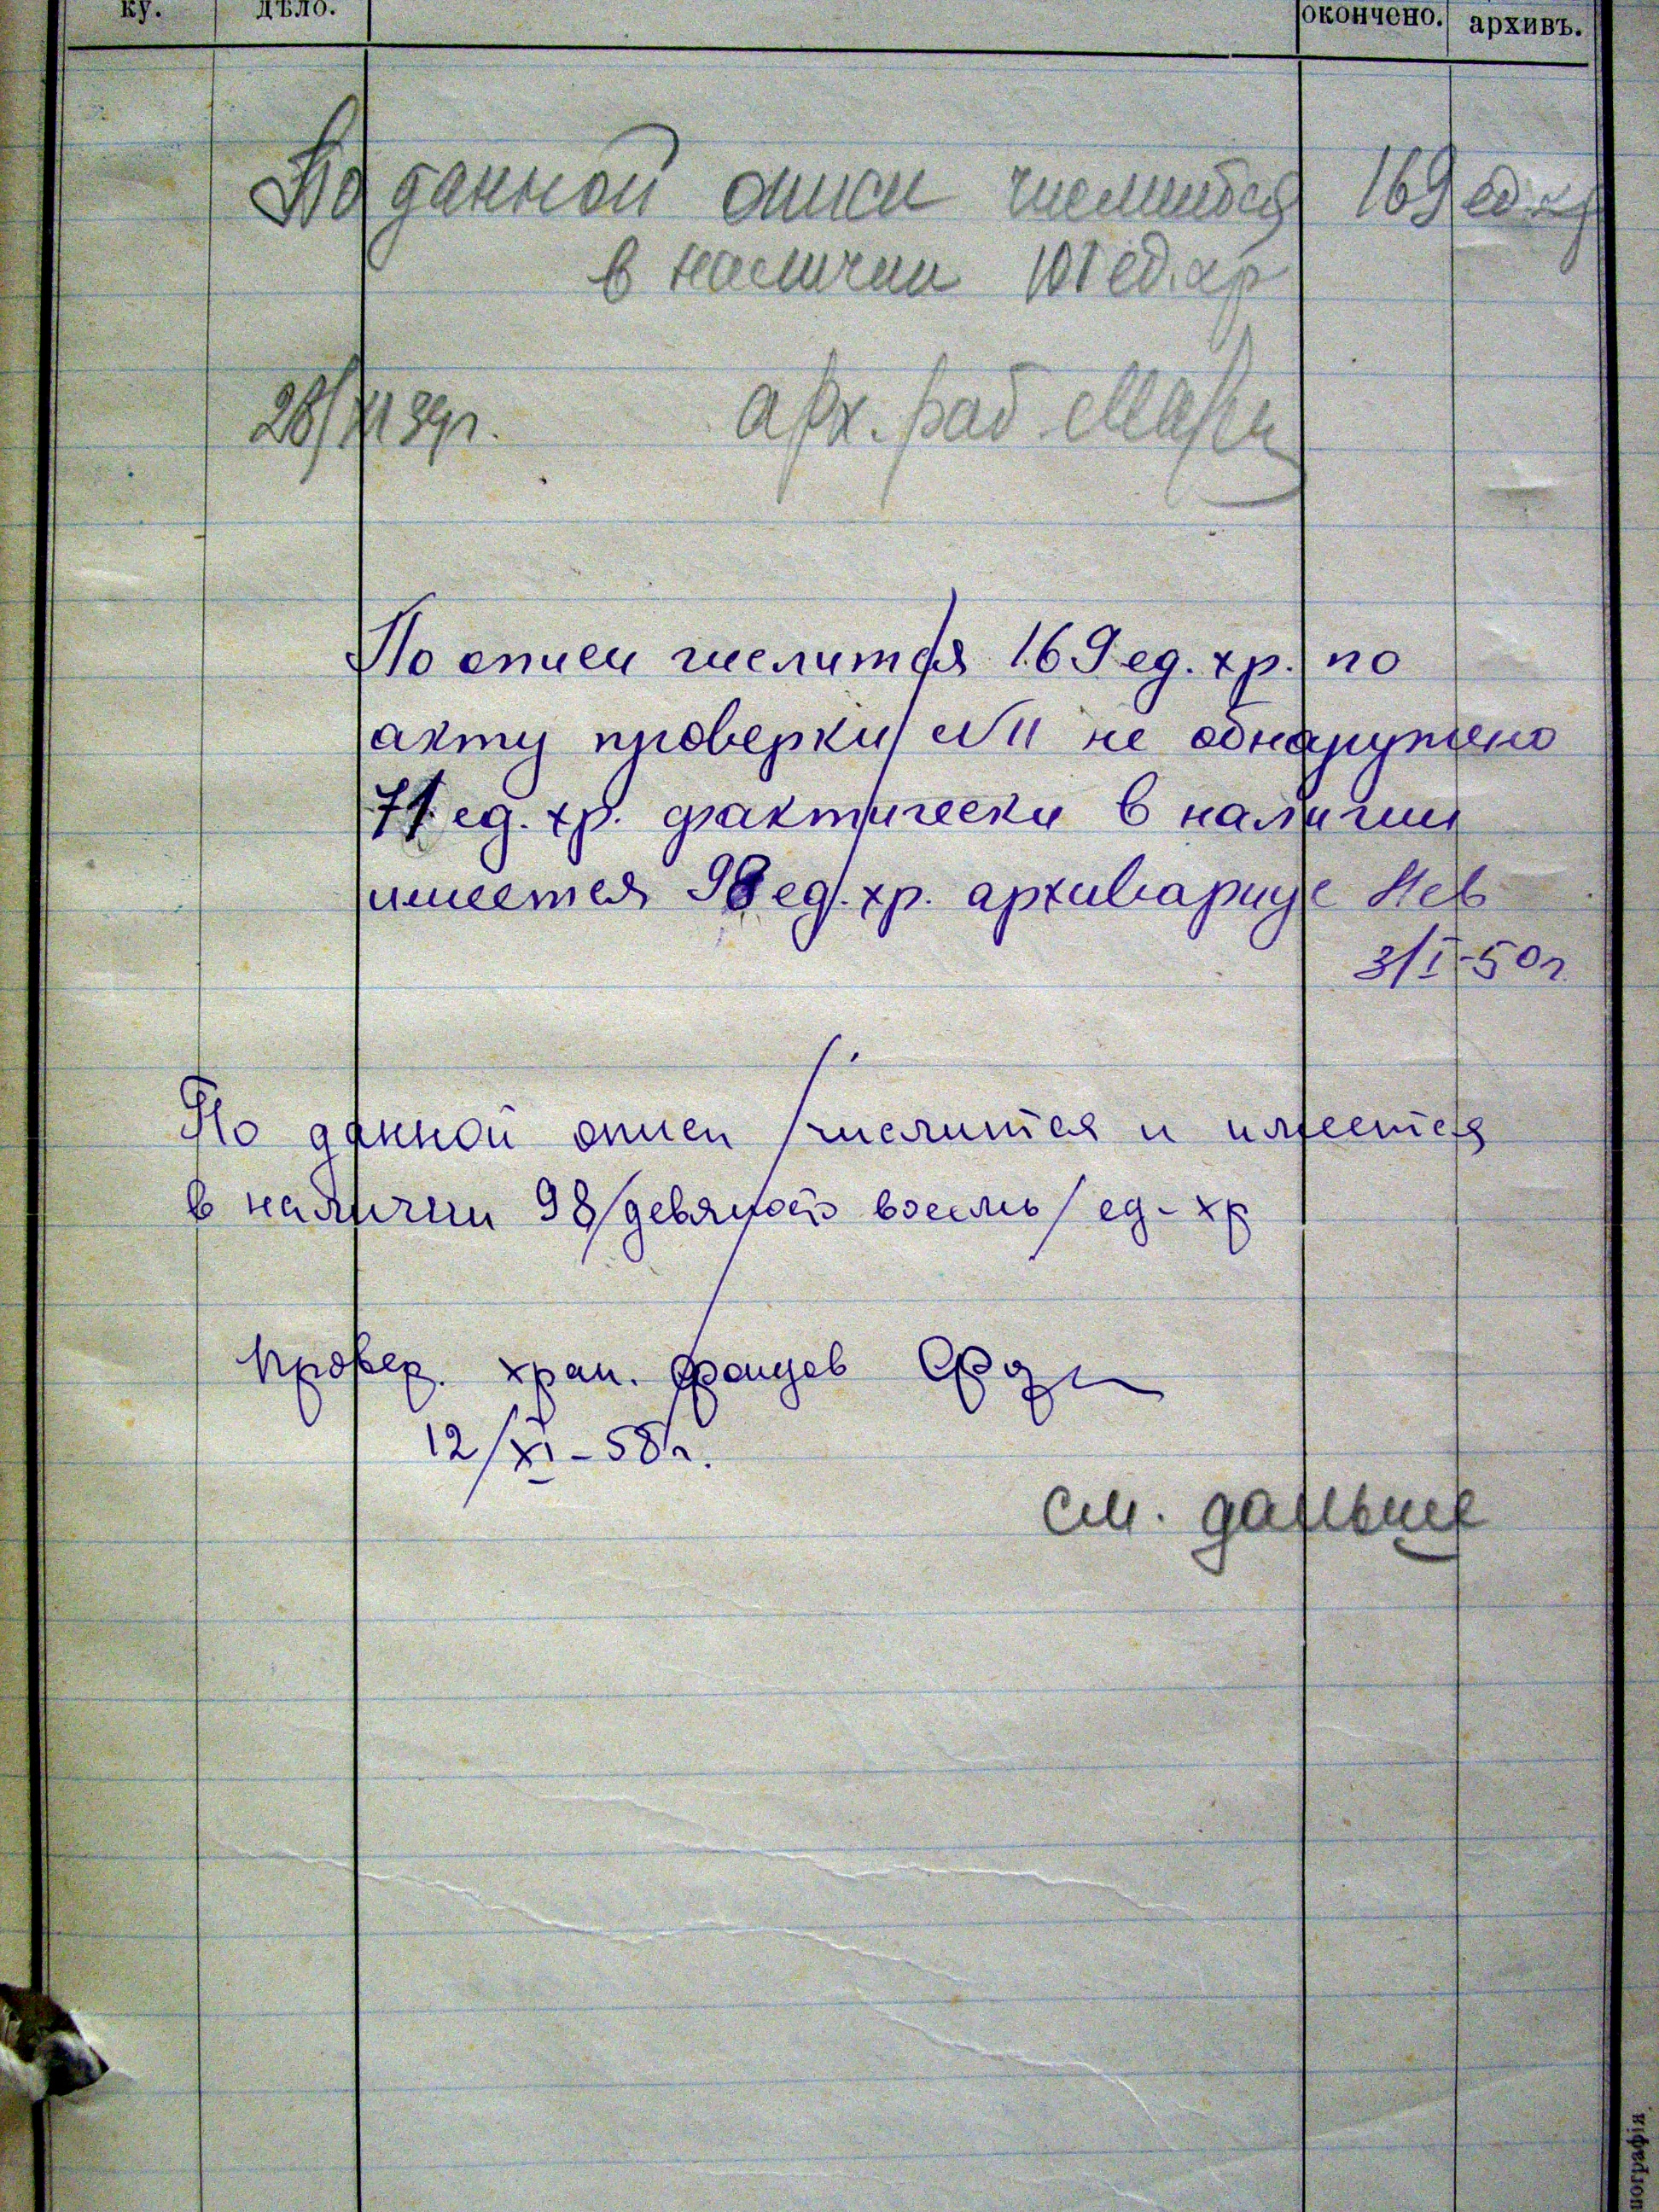 ку. дѣло. окончено. архивъ.
По данной описи числится 169 ед хр
в наличии 101 ед. хр
28/XII 39г. арх. раб
По описи числится 169 ед. хр. по
акту проверки №11 не обнаружено
71 ед. хр. фактически в наличии
имеется 98 ед. хр. архивариус
3/I-50г.
По данной описи числится и имеется
в наличии 98/девяносто восемь/ ед-хр
Провер. хран. фондов
12/XI-58г.
см. дальше
пографія